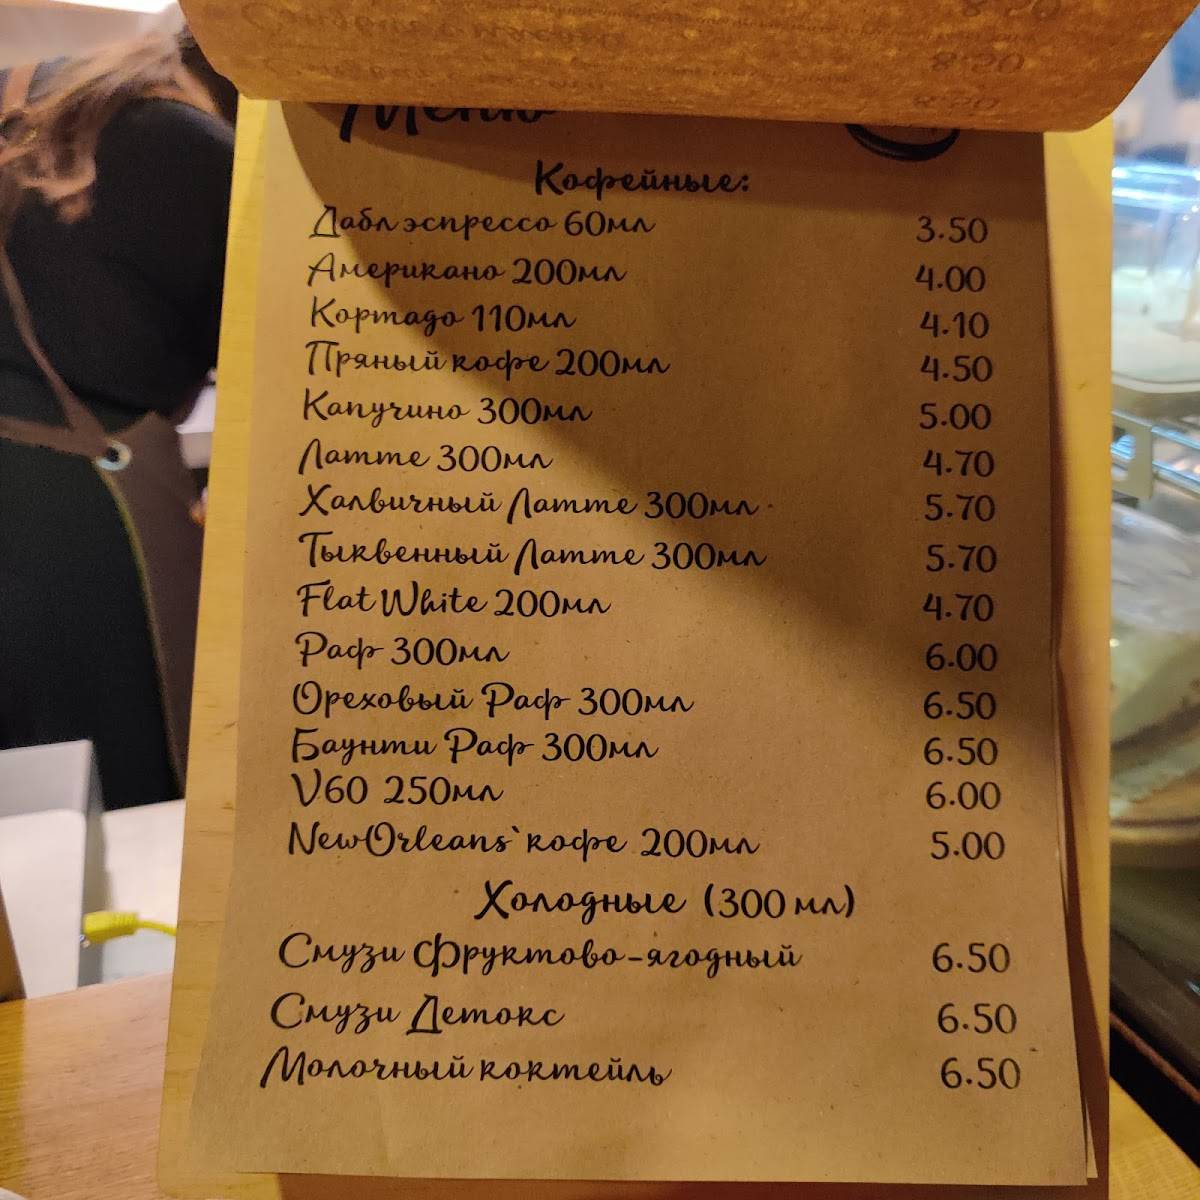 Меню
Кофейные:
Дабл эспрессо 60мл 3.50
Американо 200мл 4.00
Кортадо 110мл 4.10
Пряный кофе 200мл 4.50
Капучино 300мл 5.00
Латте 300мл 4.70
Халвичный Латте 300мл 5.70
Тыквенный Латте 300мл 5.70
Flat White 200мл 4.70
Раф 300мл 6.00
Ореховый Раф 300мл 6.50
Баунти Раф 300мл 6.50
V60 250мл 6.00
NewOrleans`кофе 200мл 5.00
Холодные (300 мл)
Смузи Фруктово-ягодный 6.50
Смузи Детокс 6.50
Молочный коктейль 6.50